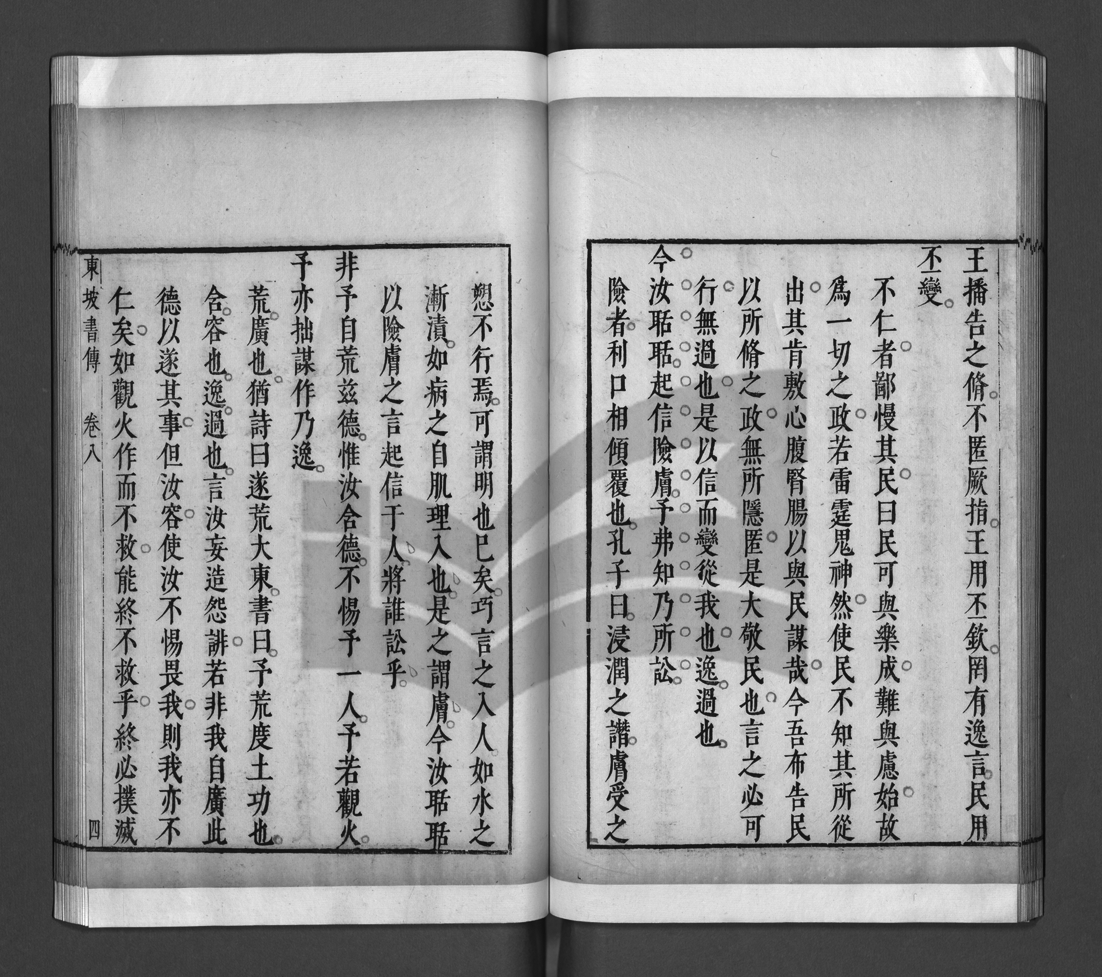 王播告之脩不匿厥指王用丕欽罔有逸言民用
丕變
不仁者鄙慢其民曰民可與樂成難與慮始故
爲一切之政若雷霆鬼神然使民不知其所從
出其肯敷心腹腎腸以與民謀哉今吾布告民
以所脩之政無所隱匿是大敬民也言之必可
行無過也是以信而變從我也逸過也
今汝聒聒起信險膚予弗知乃所訟
險者利口相傾覆也孔子曰浸潤之譖膚受之
愬不行焉可謂明也已矣巧言之入人如水之
漸漬如病之自肌理入也是之謂膚今汝聒聒
以險膚之言起信于人將誰訟乎
非予自荒兹德惟汝含德不惕予一人予若觀火
予亦拙謀作乃逸
荒廣也猶詩曰遂荒大東書曰予荒度土功也
含容也逸過也言汝妄造怨誹若非我自廣此
德以遂其事但汝容使汝不惕畏我則我亦不
仁矣如觀火作而不救能終不救乎終必撲滅
東坡書傳 卷八 四